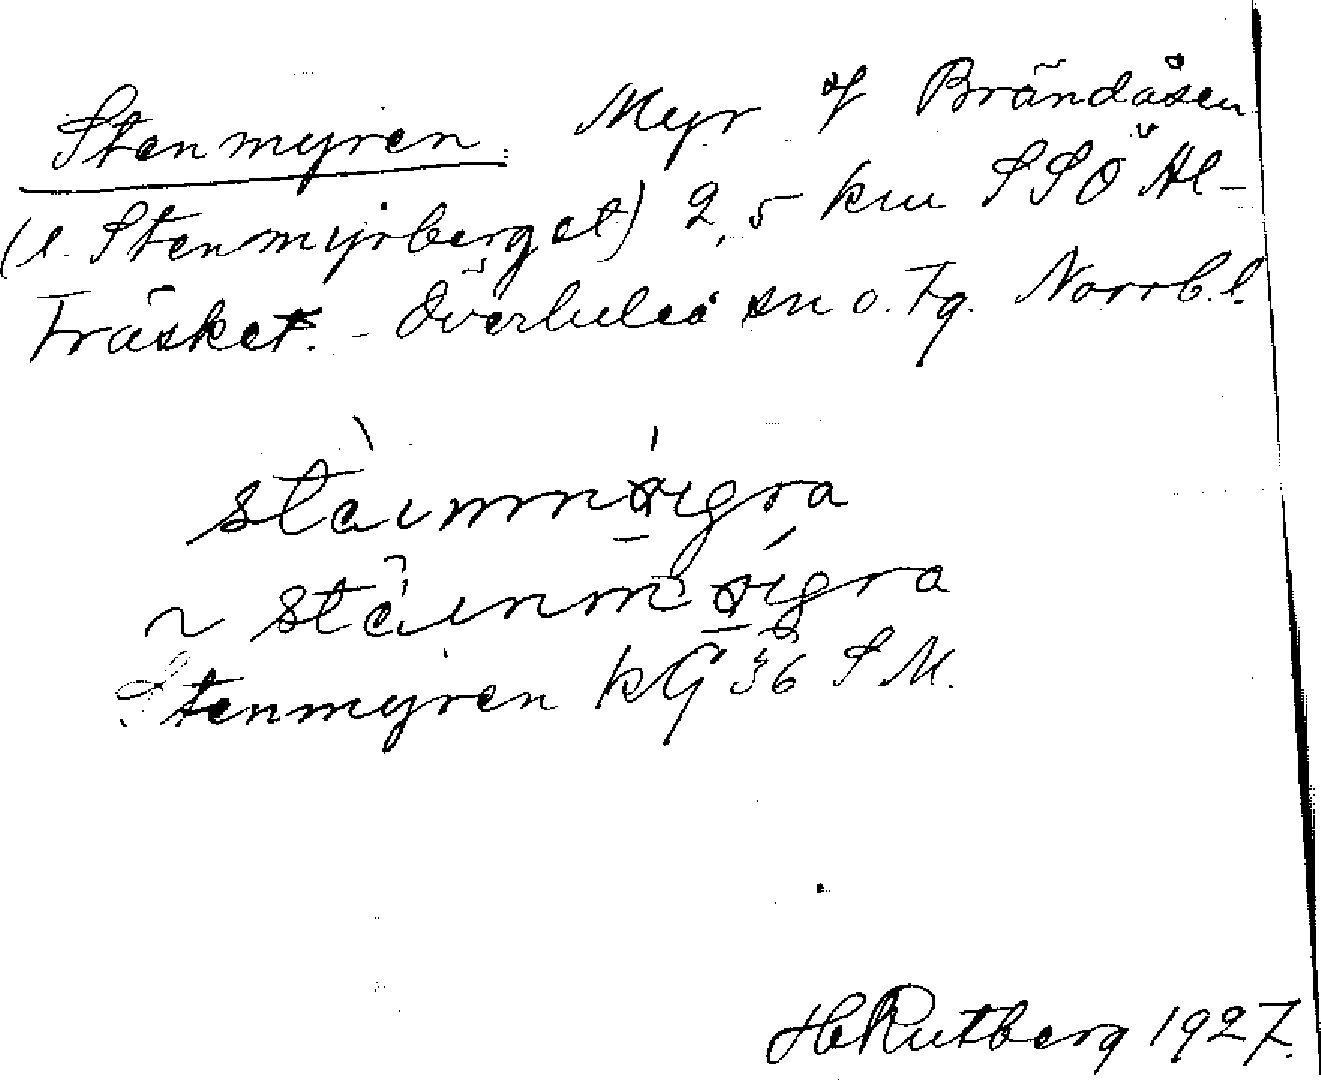 Stenmyren. Myr V Brändåsen
(l. Stenmyrberget) 2,5 km SSÖ Al-
träsket. - Överluleå sn o. tg. Norrb. l.
stàinmǿigra
~ stàinmǿigra
Stenmyren kG 36 SM.
H Rutberg 1927.